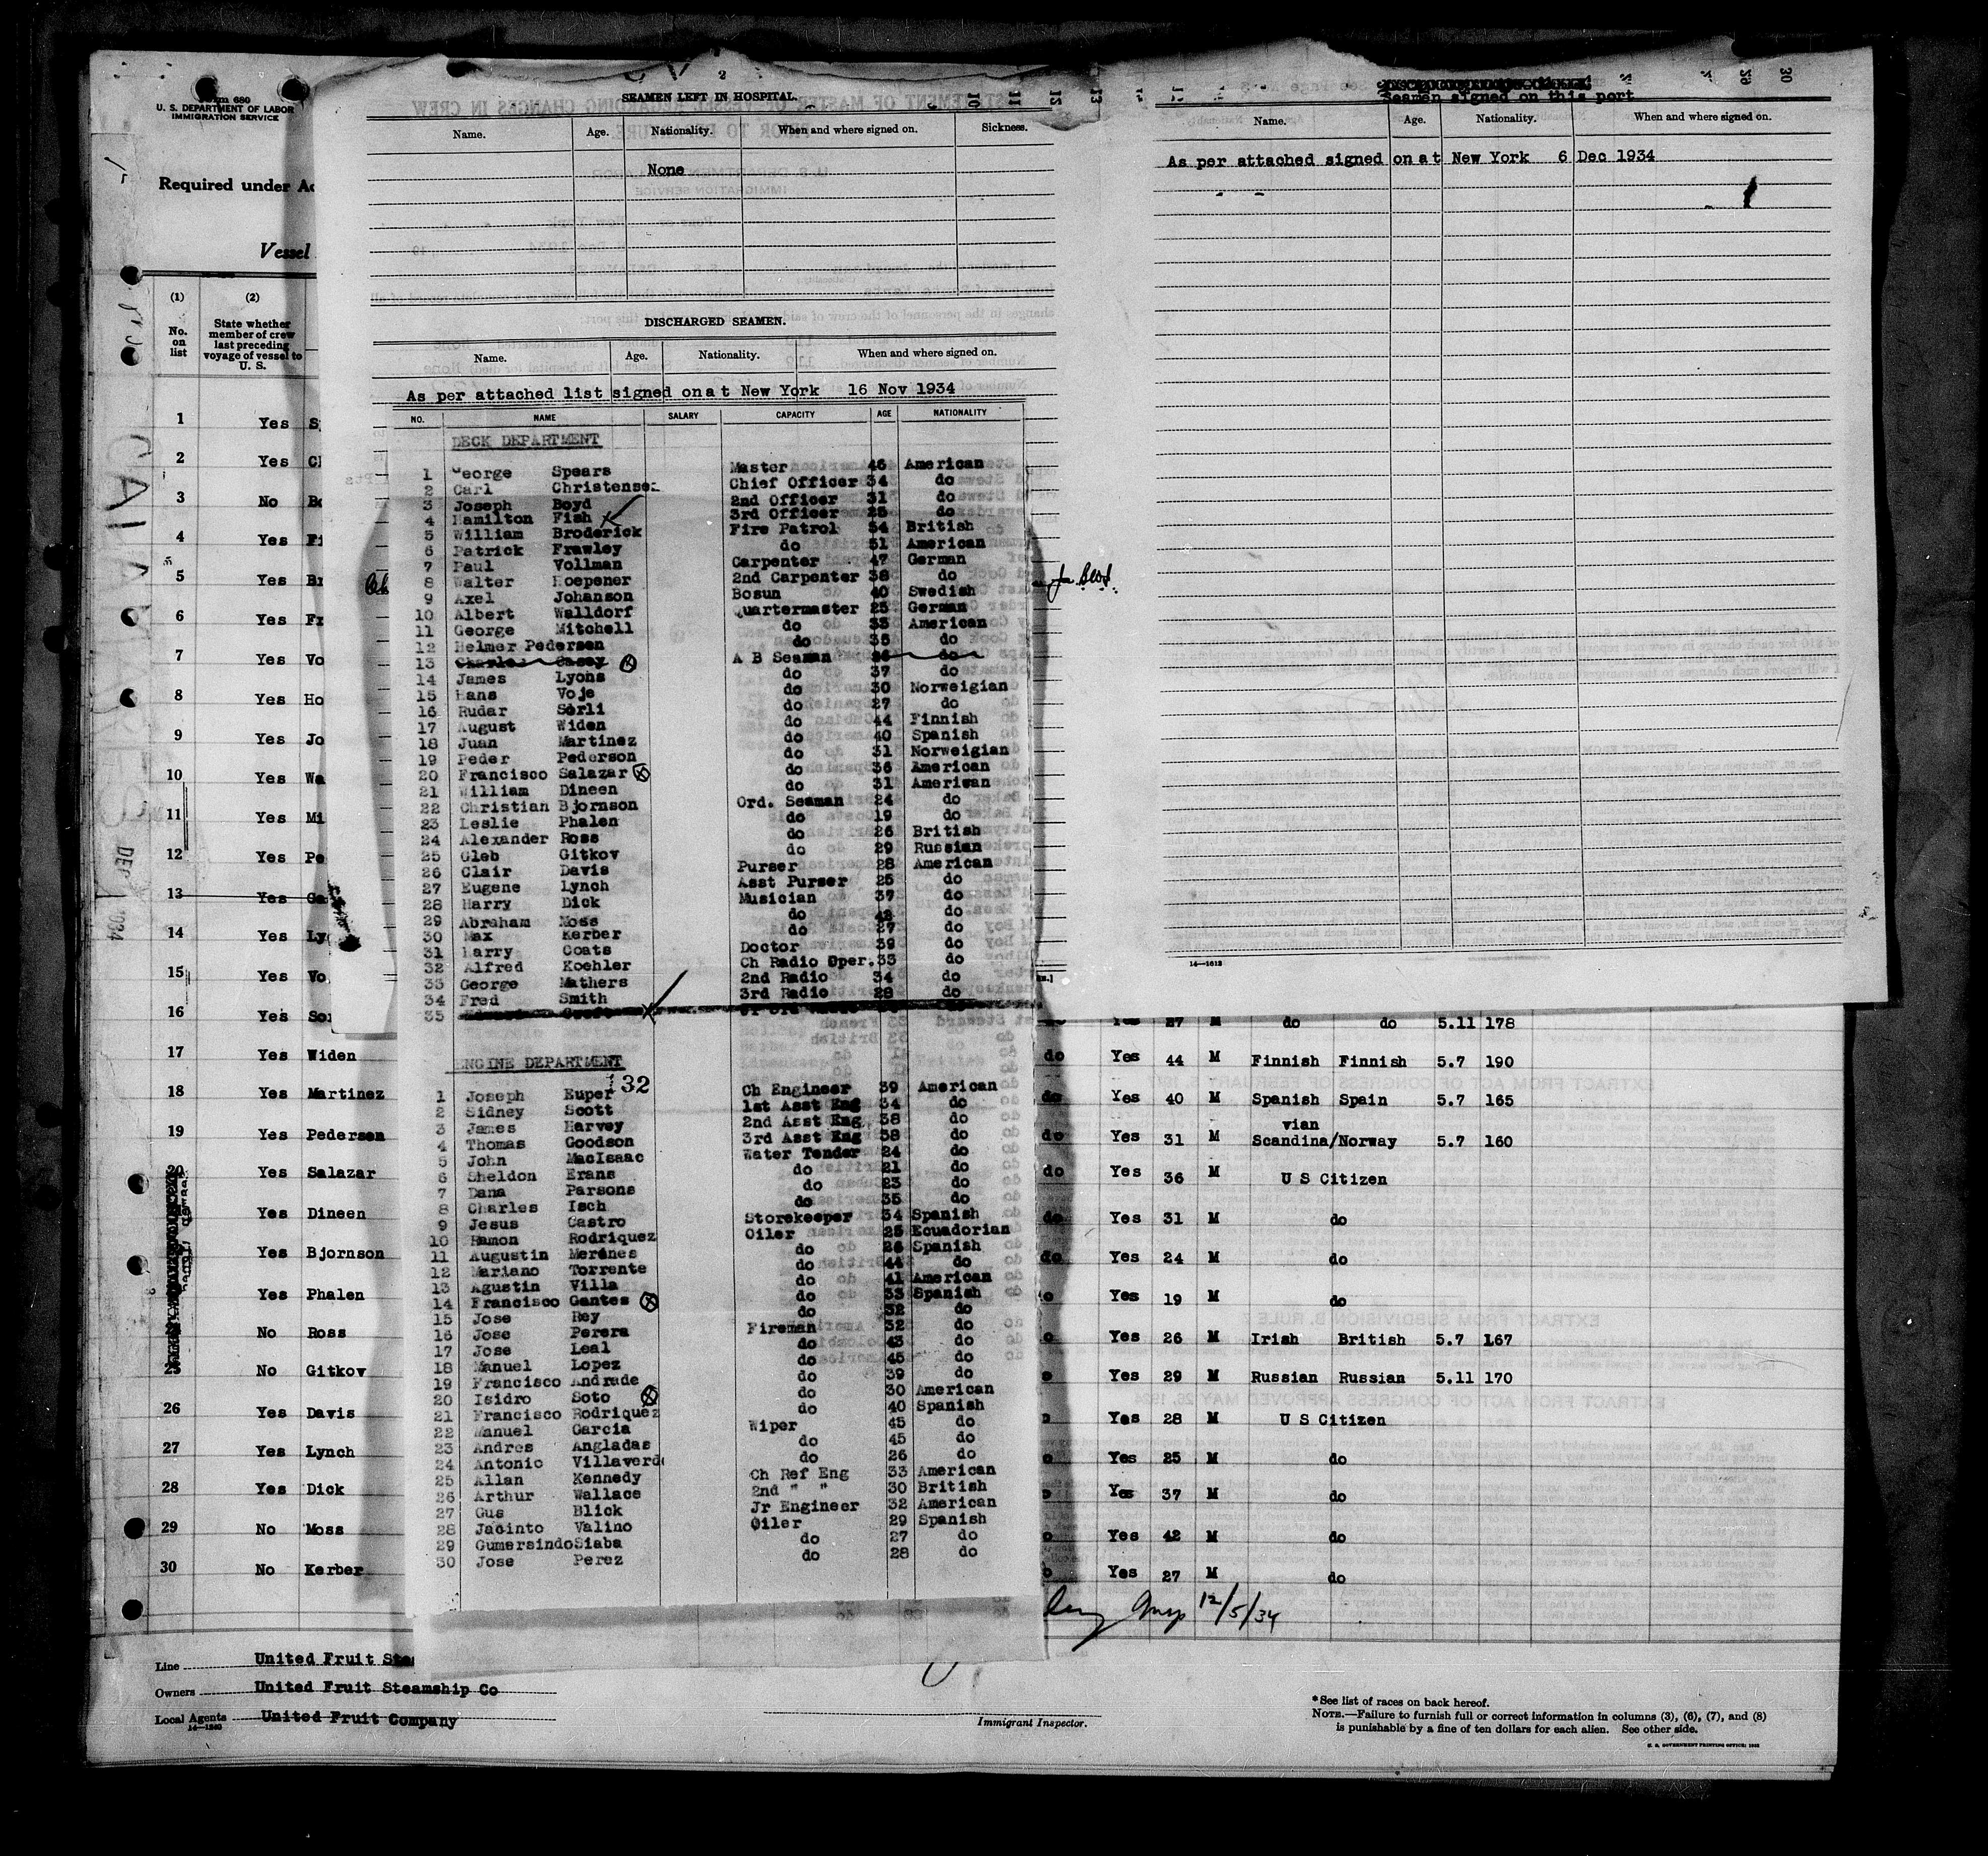 Form 680
U. S. DEPARTMENT OF LABOR
IMMIGRATION SERVICE
Required under
Vessel
(1) (2)
No. on list
State whether member of crew last preceding voyage of vessel to U. S.
1 Yes
2 Yes
3 No
4 Yes
5 Yes
6 Yes
7 Yes Vo
8 Yes Ho
9 Yes Jo
10 Yes Wa
11 Yes Mi
12 Yes Pe
13 Yes
14 Yes Ly
15 Yes Vo
16 Yes
17 Yes Widen
18 Yes Martinez
19 Yes Pedersen
Yes Salazar
Yes Dineen
Yes Bjornson
Yes Phalen
No Ross
25 No Gitkov
26 Yes Davis
27 Yes Lynch
28 Yes Dick
29 No Moss
30 No Kerber
SEAMEN LEFT IN HOSPITAL.
Name. Age. Nationality. When and where signed on. Sickness.
None
DISCHARGED SEAMEN.
Name. Age. Nationality. When and where signed on.
As per attached list signed on at New York 16 Nov 1934
NO. NAME SALARY CAPACITY AGE NATIONALITY
DECK DEPARTMENT
1 George Spears Master 46 American
2 Carl Christensen Chief Officer 34 do
3 Joseph Boyd 2nd Officer 31 do
4 Hamilton Fish 3rd Officer 25 do
5 William Broderick Fire Patrol 54 British
6 Patrick Frawley do 51 American
7 Paul Vollman Carpenter 47 German
8 Walter Hoepener 2nd Carpenter 38 do
9 Axel Johanson Bosun 40 Swedish
10 Albert Walldorf Quartermaster 25 German
11 George Mitchell do 33 American
12 Helmer Pedersen do 35 do
13 Charles Casey A B Seaman 26 do
14 James Lyons do 37 do
15 Hans Voje do 30 Norweigian
16 Rudar Sorli do 27 do
17 August Widen do 44 Finnish
18 Juan Martinez do 40 Spanish
19 Peder Pederson do 31 Norweigian
20 Francisco Salazar do 36 American
21 William Dineen do 31 American
22 Christian Bjornson Ord. Seaman 24 do
23 Leslie Phalen do 19 do
24 Alexander Ross do 26 British
25 Gleb Gitkov do 29 Russian
26 Clair Davis Purser 28 American
27 Eugene Lynch Asst Purser 25 do
28 Harry Dick Musician 37 do
29 Abraham Moss do 42 do
30 Max Kerber do 27 do
31 Harry Coats Doctor 39 do
32 Alfred Koehler Ch Radio Oper. 33 do
33 George Mathers 2nd Radio 34 do
34 Fred Smith 3rd Radio 28 do
35
ENGINE DEPARTMENT
32
1 Joseph Euper Ch Engineer 39 American
2 Sidney Scott 1st Asst Eng 34 do
3 James Harvey 2nd Asst Eng 38 do
4 Thomas Goodson 3rd Asst Eng 38 do
5 John MacIsaac Water Tender 24 do
6 Sheldon Erans do 21 do
7 Dana Parsons do 23 do
8 Charles Isch do 35 do
9 Jesus Castro Storekeeper 34 Spanish
10 Ramon Rodriquez Oiler 25 Ecuadorian
11 Augustin Merenes do 26 Spanish
12 Mariano Torrente do 44 do
13 Agustin Villa do 41 American
14 Francisco Gantes do 33 Spanish
15 Jose Rey do 32 do
16 Jose Perera Fireman 32 do
17 Jose Leal do 43 do
18 Manuel Lopez do 45 do
19 Francisco Andrade do 39 do
20 Isidro Soto do 30 American
21 Francisco Rodriquez do 40 Spanish
22 Manuel Garcia Wiper 45 do
23 Andres Angladas do 45 do
24 Antonio Villaverde do 26 do
25 Allan Kennedy Ch Ref Eng 33 American
26 Arthur Wallace 2nd " " 30 British
27 Gus Blick Jr Engineer 32 American
28 Jacinto Valino Oiler 29 Spanish
29 Gumersindo Siaba do 27 do
30 Jose Perez do 28 do
Seamen signed on this port
Name. Age. Nationality. When and where signed on.
As per attached signed on at New York 6 Dec 1934
14—1612
Yes 27 M do do 5.11 178
do Yes 44 M Finnish Finnish 5.7 190
do Yes 40 M Spanish Spain 5.7 165
do Yes 31 M Scandinavian/Norway 5.7 160
do Yes 36 M U S Citizen
do Yes 31 M do
do Yes 24 M do
Yes 19 M do
Yes 26 M Irish British 5.7 167
Yes 29 M Russian Russian 5.11 170
Yes 28 M U S Citizen
Yes 25 M do
Yes 37 M do
Yes 42 M do
Yes 27 M do
12/5/34
Line United Fruit
Owners United Fruit Steamship Co
Local Agents United Fruit Company
14—1240
Immigrant Inspector.
* See list of races on back hereof.
NOTE.—Failure to furnish full or correct information in columns (3), (6), (7), and (8)
is punishable by a fine of ten dollars for each alien. See other side.
U. S. GOVERNMENT PRINTING OFFICE: